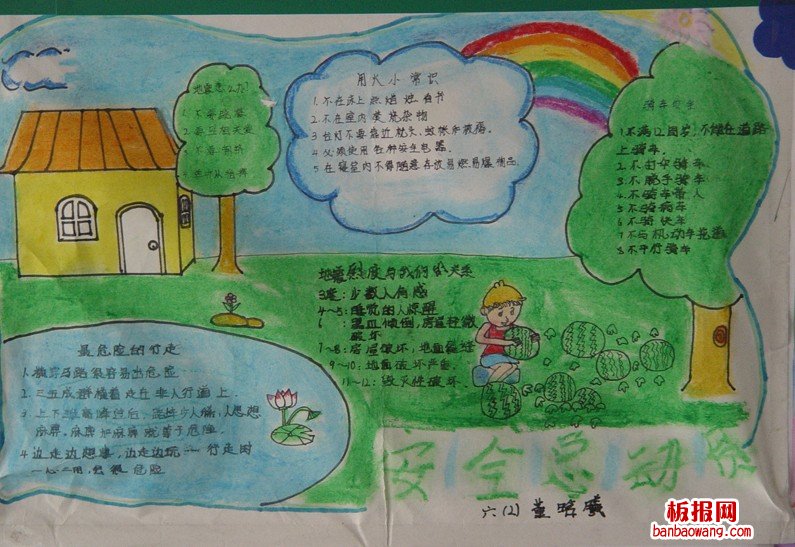 地震怎么办?
1. 不要
2.
3. 不要
4.
用火小常识
1. 不在床上点烟 烛 看书
2. 不在室内焚烧杂物
3. 台灯不要靠近枕头、蚊帐和被褥。
4. 必须使用各种安全电器。
5. 在寝室内不得随意存放易燃易爆物品
骑车安全
1. 不满12周岁,不能在道路
上骑车.
2. 不打伞骑车
3. 不脱手骑车
4. 不骑车带人
5. 不骑病车
6. 不骑快车
7. 不与机动车抢道
8. 不平行骑车
地震烈度与我们的关系
3度:少数人有感
4~5:睡觉的人惊醒
6 : 器皿倾倒,房屋轻微
破坏
7~8:房屋破坏,地面裂缝
9~10:地面破坏严重.
11~12:毁灭性破坏.
最危险的行走
1. 横穿马路很容易出危险
2. 三五成群横着走在非人行道上.
3. 上下班高峰过后 人稀,人思想
麻痹,麻痹 麻痹就等于危险.
4. 边走边想事,边走边玩……行走时
一心二用,会很危险
安全总动员
六(2) 董
板报网
banbaowang.com